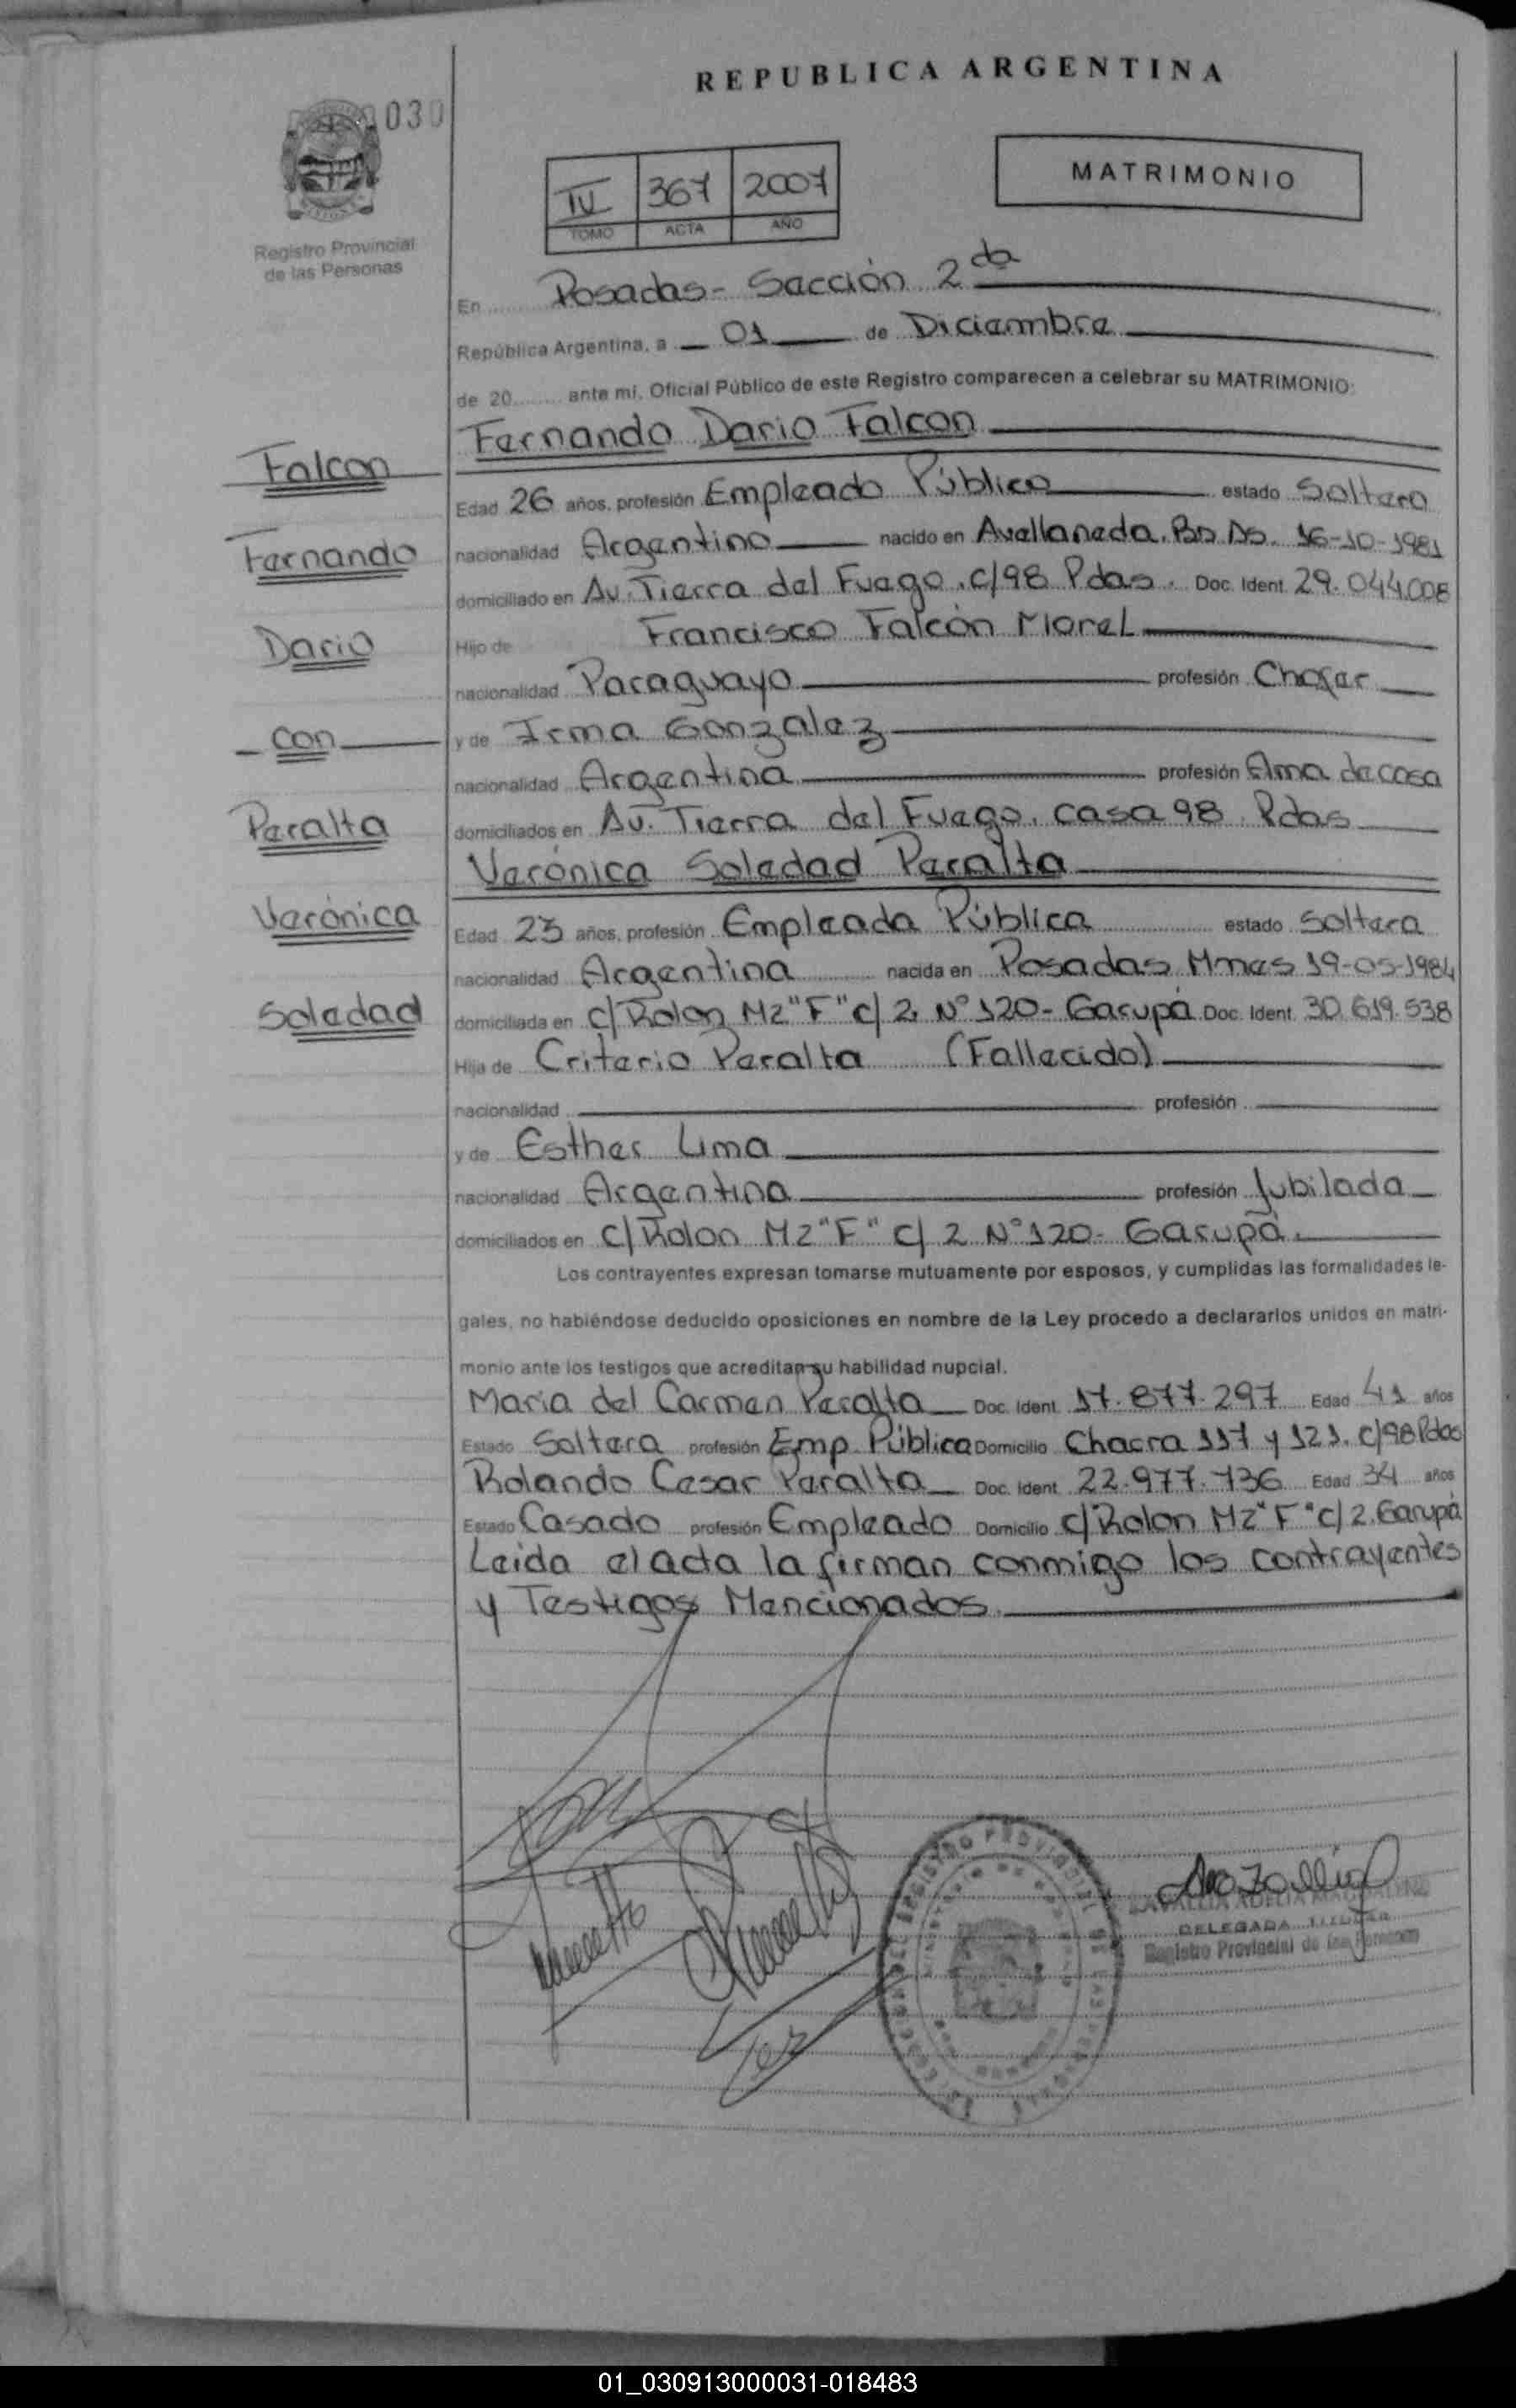 REPUBLICA ARGENTINA
030
MATRIMONIO
IV 367 2007
TOMO ACTA AÑO
Registro Provincial
de las Personas
En Posadas - Sección 2da
República Argentina, a 01 de Diciembre
de 20........ ante mí, Oficial Público de este Registro comparecen a celebrar su MATRIMONIO:
Fernando Dario Falcon
Falcon
Edad 26 años, profesión Empleado Público estado Soltero
Fernando
nacionalidad Argentino nacido en Avellaneda. Bs As. 16-10-1981
domiciliado en Av. Tierra del Fuego. c/98 Pdas. Doc. Ident. 29.044.008
Dario
Hijo de Francisco Falcón Morel
nacionalidad Paraguayo profesión Chofer
con
y de Irma Gonzalez
nacionalidad Argentina profesión Ama de casa
Peralta
domiciliados en Av. Tierra del Fuego. casa 98 Pdas
Verónica Soledad Peralta
Verónica
Edad 23 años, profesión Empleada Pública estado Soltera
nacionalidad Argentina nacida en Posadas Mnes 19-05-1984
Soledad
domiciliada en c/ Rolon Mz "F" c/ 2 N° 120 - Garupá Doc. Ident. 30.619.538
Hija de Criterio Peralta (Fallecido)
nacionalidad profesión
y de Esther Lima
nacionalidad Argentina profesión Jubilada
domiciliados en c/ Rolon Mz "F" c/ 2 N° 120 - Garupá.
Los contrayentes expresan tomarse mutuamente por esposos, y cumplidas las formalidades le-
gales, no habiéndose deducido oposiciones en nombre de la Ley procedo a declararlos unidos en matri-
monio ante los testigos que acreditan su habilidad nupcial.
Maria del Carmen Peralta Doc. Ident. 17.877.297 Edad 41 años
Estado Soltera profesión Emp. Pública Domicilio Chacra 117 y 121. c/98 Pdas
Rolando Cesar Peralta Doc. Ident. 22.977.736 Edad 34 años
Estado Casado profesión Empleado Domicilio c/ Rolon Mz "F" c/ 2. Garupá
Leida el acta la firman conmigo los contrayentes
y Testigos Mencionados.
REGISTRO PROVINCIAL DE LAS PERSONAS
DELEGADA TITULAR
Registro Provincial de las Personas
01_030913000031-018483